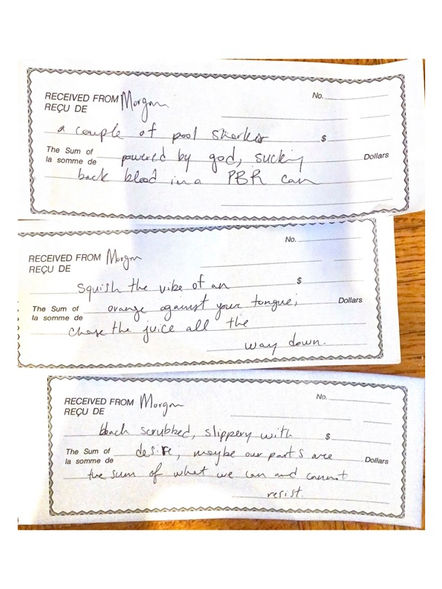 RECEIVED FROM Morgan No.
REÇU DE
a couple of pool sharks $
The Sum of powered by god, sucking Dollars
la somme de
back blood in a PBR can
No.
RECEIVED FROM Morgan
REÇU DE
Squish the vibe of an $
The Sum of orange against your tongue; Dollars
la somme de
chase the juice all the
way down.
RECEIVED FROM Morgan No.
REÇU DE
bleach scrubbed, slippery with $
The Sum of desiR, maybe our parts are Dollars
la somme de
the sum of what we can and cannot
resist.